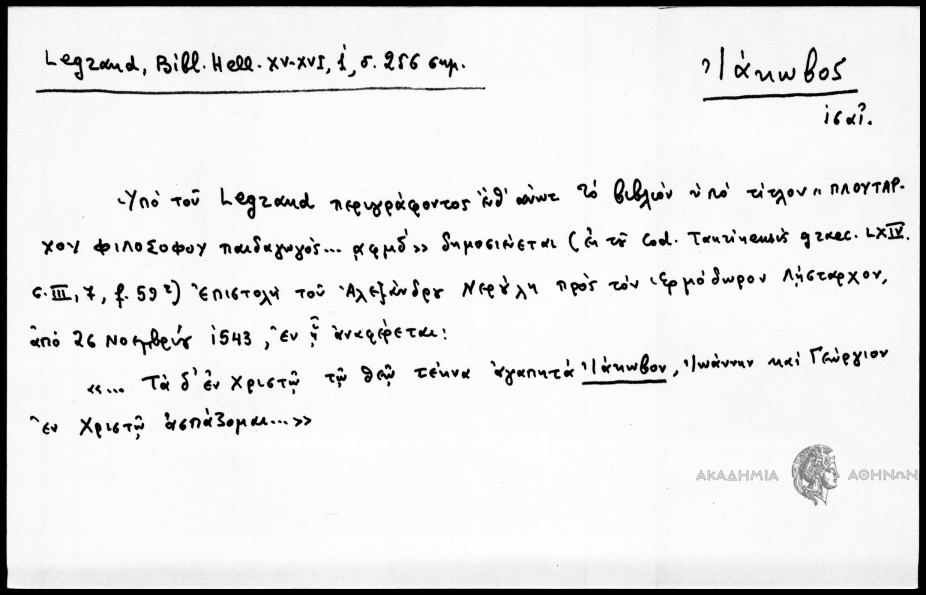 Legrand, Bibl. Hell. XV-XVI, ἱ, σ. 256 σημ.
Ἰάκωβος
ισαῖ.
Ὑπὸ τοῦ Legrand περιγράφοντος τὸ βιβλίον ὑπὸ τίτλον «ΠΛΟΥΤΑΡ-
ΧΟΥ ΦΙΛΟΣΟΦΟΥ παιδαγωγός... ͵αφμδ´» δημοσιεύεται (ἐκ τοῦ Cod. Taurinensis graec. LXIV.
c. III, 7, f. 59r) Ἐπιστολὴ τοῦ Ἀλεξάνδρου Νερούλη πρὸς τὸν Ἑρμόδωρον Λήσταρχον,
ἀπὸ 26 Νοεμβρίου 1543, ἐν ᾗ ἀναφέρεται:
«... Τὰ δ' ἐν Χριστῷ τῷ θεῷ τέκνα ἀγαπητὰ Ἰάκωβον, Ἰωάννην καὶ Γεώργιον
ἐν Χριστῷ ἀσπάζομαι...»
ΑΚΑΔΗΜΙΑ ΑΘΗΝΩΝ